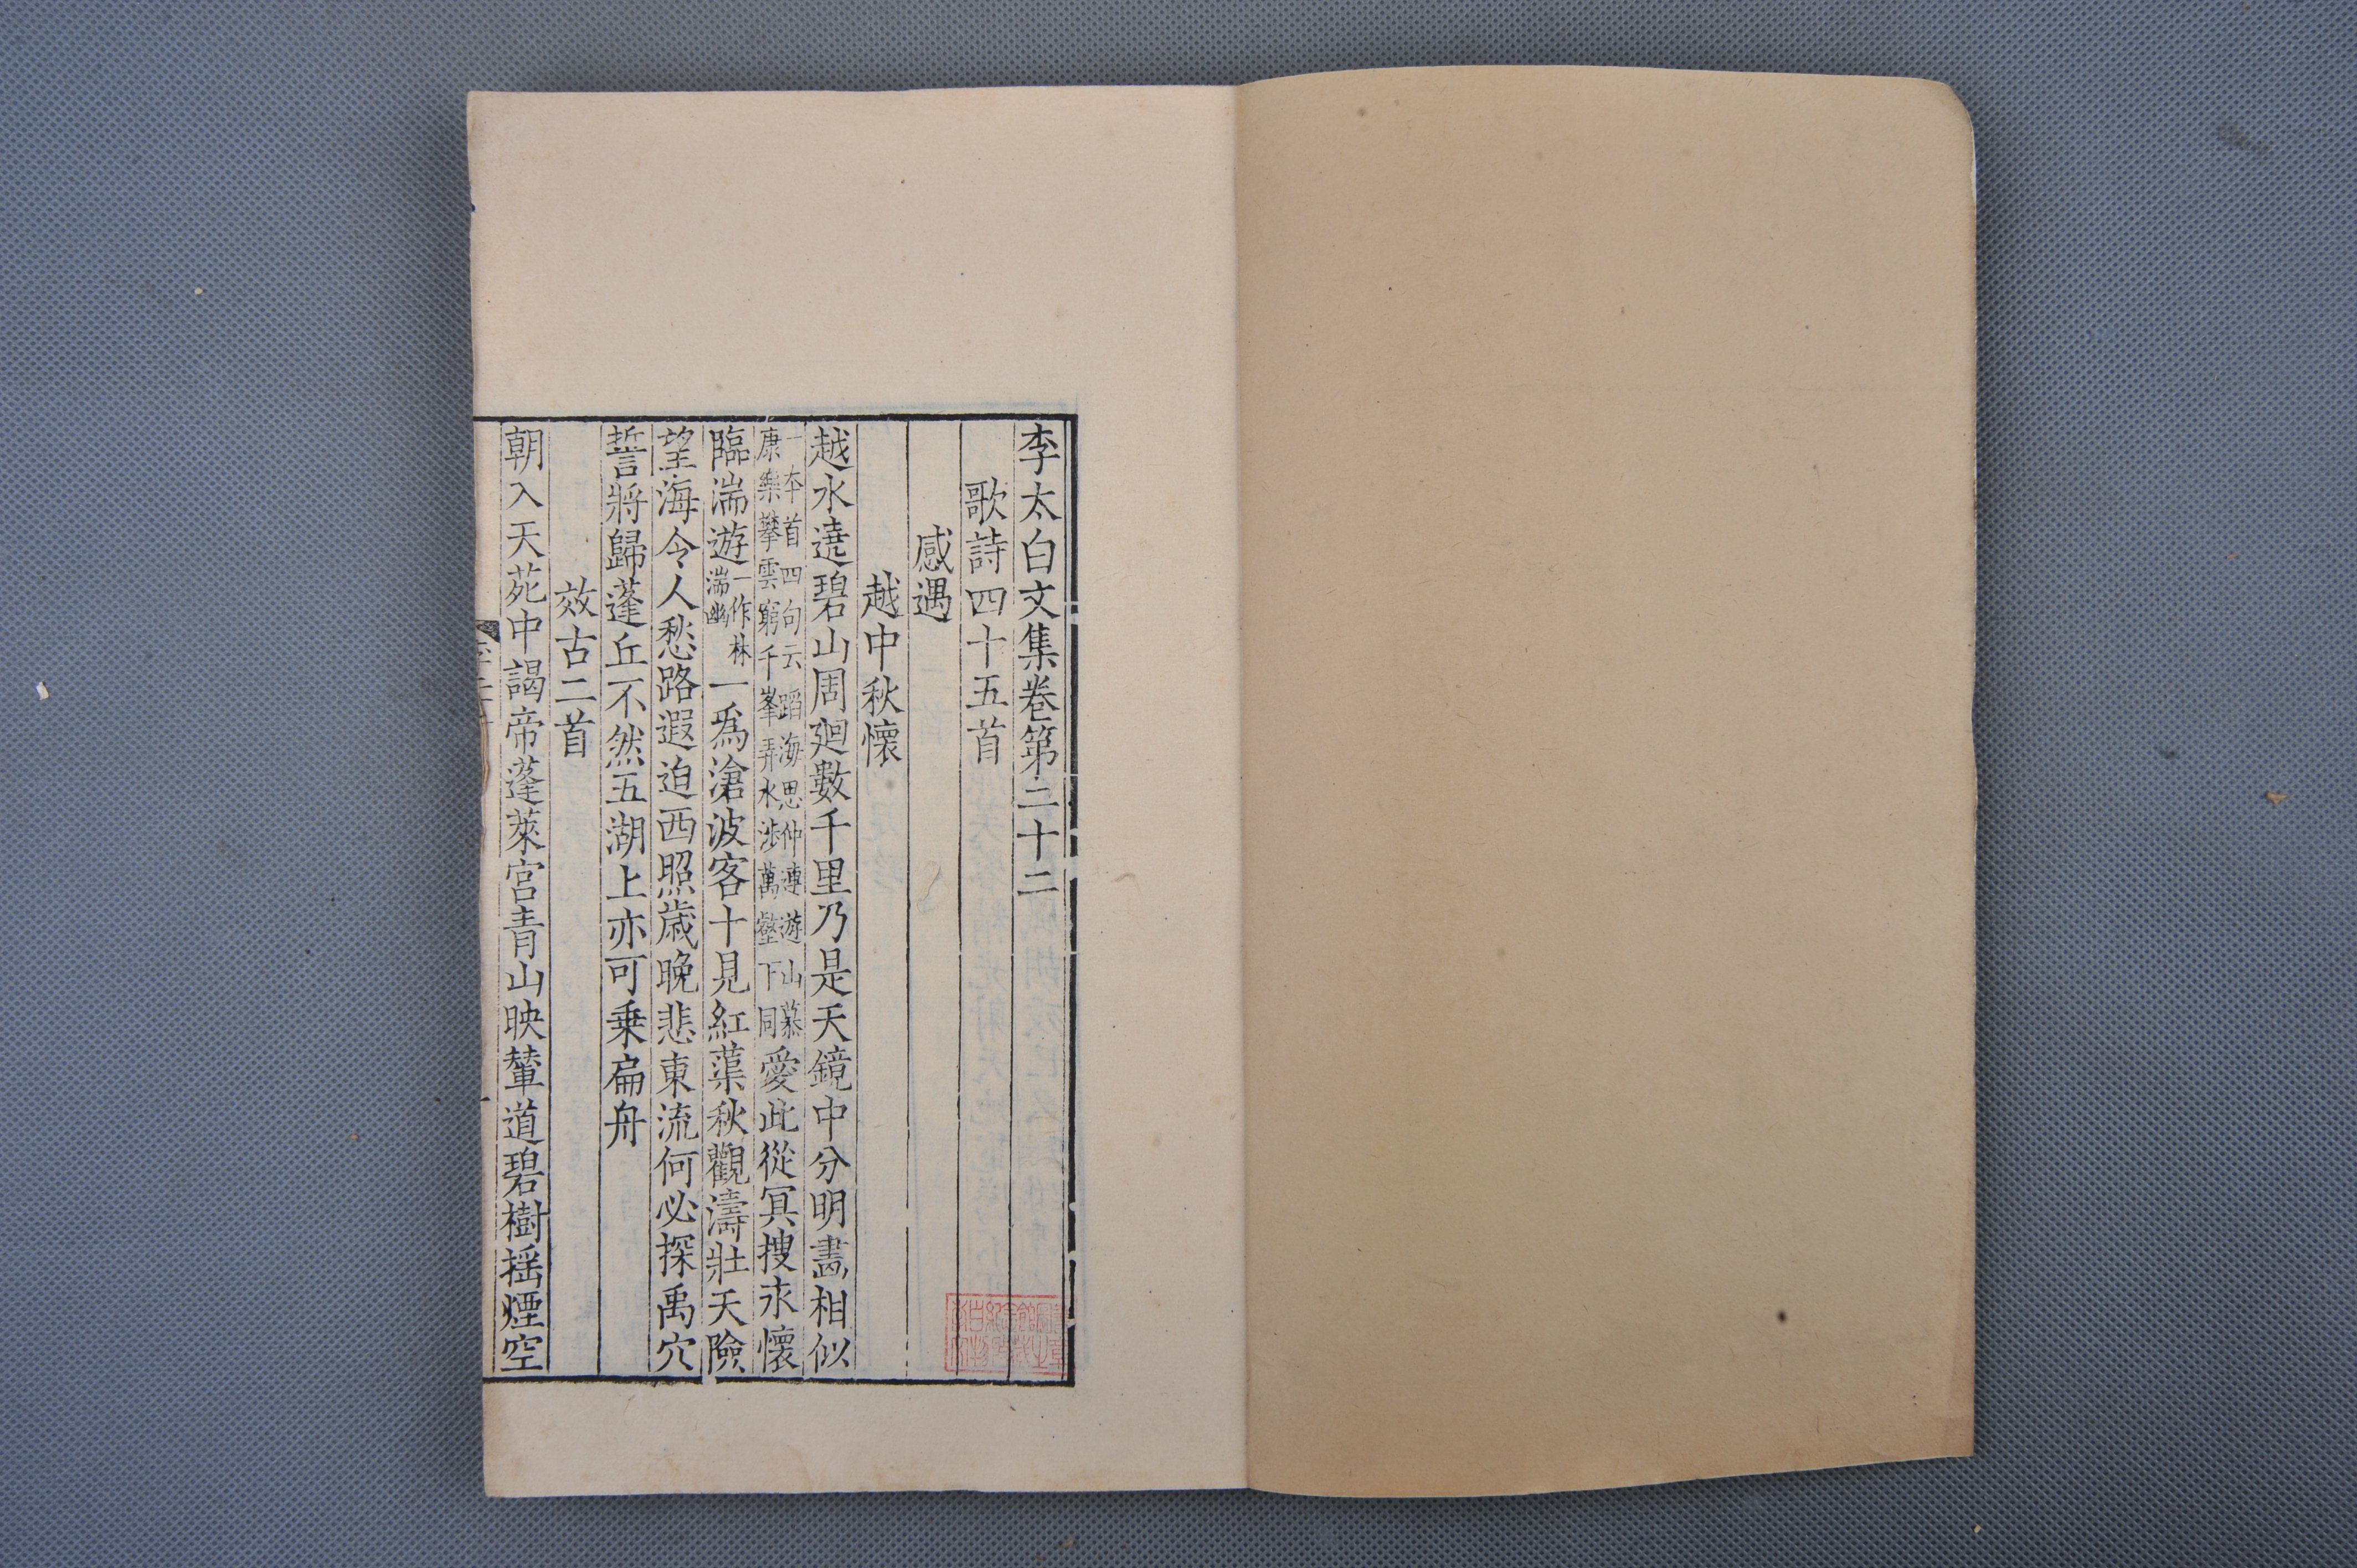 李太白文集卷第二十二
歌詩四十五首
感遇
越中秋懷
越水遶碧山周廻數千里乃是天鏡中分明畫相似
一本首四句云蹈海思仲連遊山慕
康樂攀雲窮千峯弄水涉萬壑下同
愛此從冥搜永懷
臨湍遊
一作林
湍幽
一爲滄波客十見紅蕖秋觀濤壯天險
望海令人愁路遐迫西照歲晚悲東流何必探禹穴
誓將歸蓬丘不然五湖上亦可乗扁舟
效古二首
朝入天苑中謁帝蓬萊宮青山映輦道碧樹揺煙空